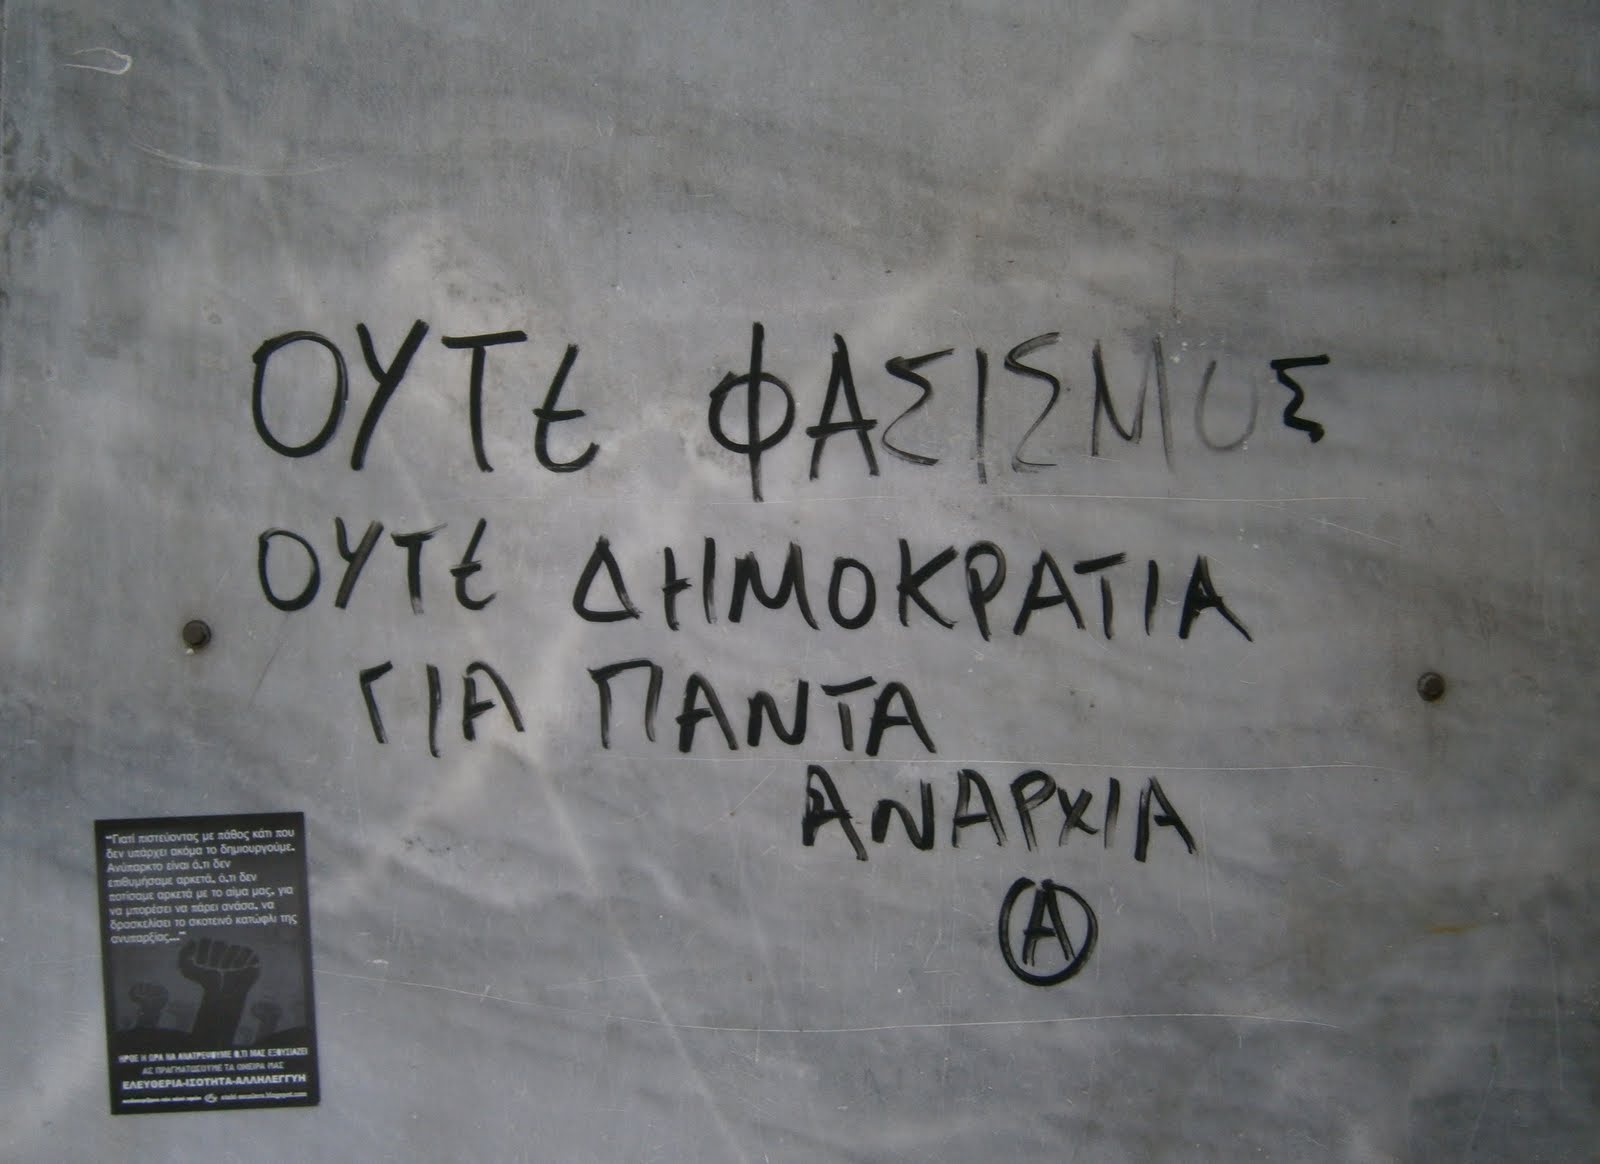 ΟΥΤΕ ΦΑΣΙΣΜΟΣ
ΟΥΤΕ ΔΗΜΟΚΡΑΤΙΑ
ΓΙΑ ΠΑΝΤΑ
ΑΝΑΡΧΙΑ
Α
"Γιατί πιστεύοντας με πάθος κάτι που
δεν υπάρχει ακόμα το δημιουργούμε.
Ανύπαρκτο είναι ό,τι δεν
επιθυμήσαμε αρκετά, ό,τι δεν
ποτίσαμε αρκετά με το αίμα μας, για
να μπορέσει να πάρει ανάσα, να
δρασκελίσει το σκοτεινό κατώφλι της
ανυπαρξίας..."
ΗΡΘΕ Η ΩΡΑ ΝΑ ΑΝΑΤΡΕΨΟΥΜΕ Ο,ΤΙ ΜΑΣ ΕΞΟΥΣΙΑΖΕΙ
ΑΣ ΠΡΑΓΜΑΤΩΣΟΥΜΕ ΤΑ ΟΝΕΙΡΑ ΜΑΣ
ΕΛΕΥΘΕΡΙΑ-ΙΣΟΤΗΤΑ-ΑΛΛΗΛΕΓΓΥΗ